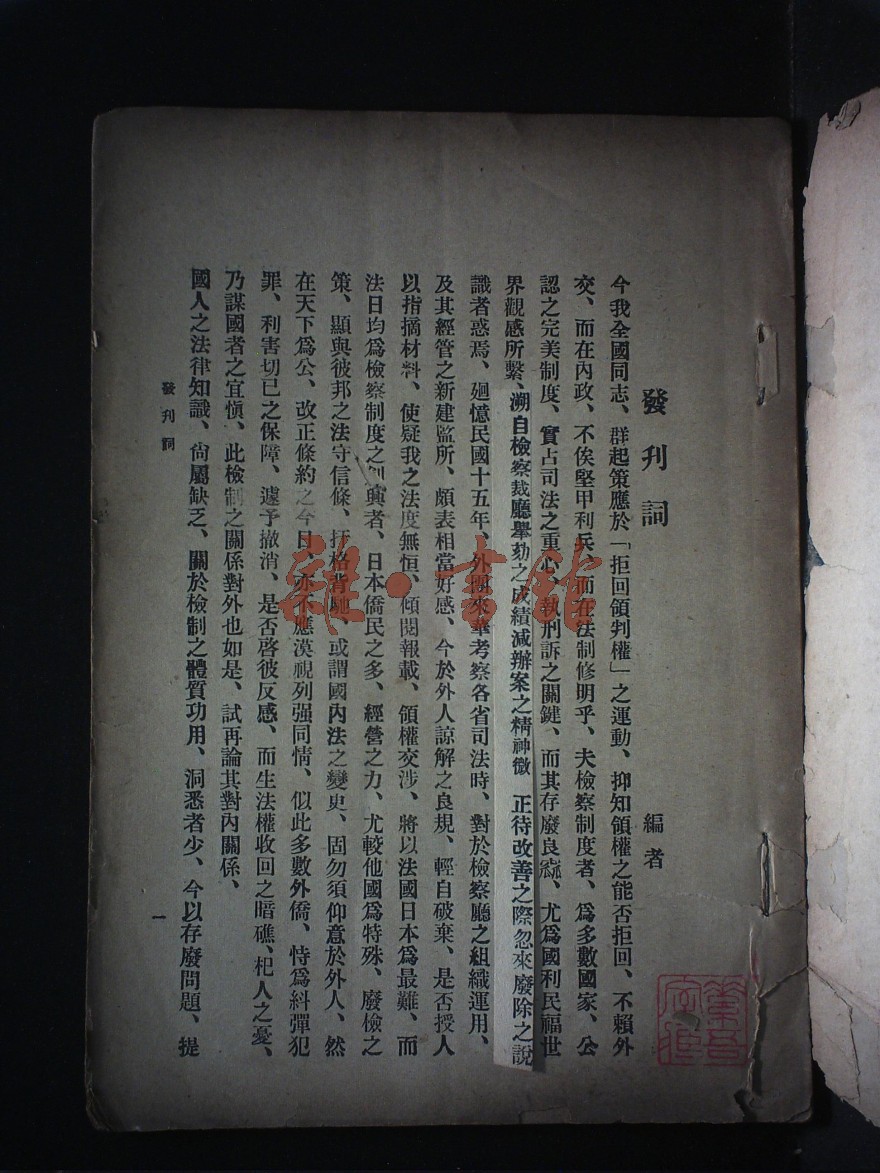 發刊詞
編者
今我全國同志、群起策應於「拒回領判權」之運動、抑知領權之能否拒回、不賴外
交、而在內政、不俟堅甲利兵、而在法制修明乎、夫檢察制度者、爲多數國家、公
認之完美制度、實占司法之重心、執刑訴之關鍵、而其存廢良窳、尤爲國利民福世
界觀感所繫、溯自檢察裁廳舉劾之成績減辦案之精神微 正待改善之際忽來廢除之說
識者惑焉、廻憶民國十五年、外團來華考察各省司法時、對於檢察廳之組織運用、
及其經管之新建監所、頗表相當好感、今於外人諒解之良規、輕自破棄、是否授人
以指摘材料、使疑我之法度無恒、傾閱報載、領權交涉、將以法國日本爲最難、而
法日均爲檢察制度之創興者、日本僑民之多、經營之力、尤較他國爲特殊、廢檢之
策、顯與彼邦之法守信條、扞格背馳、或謂國內法之變更、固勿須仰意於外人、然
在天下爲公、改正條約之今日、亦不應漠視列强同情、似此多數外僑、恃爲糾彈犯
罪、利害切已之保障、遽予撤消、是否啓彼反感、而生法權收回之暗礁、杞人之憂、
乃謀國者之宜愼、此檢制之關係對外也如是、試再論其對內關係、
國人之法律知識、尙屬缺乏、關於檢制之體質功用、洞悉者少、今以存廢問題、提
發刊詞
一
雜·書館